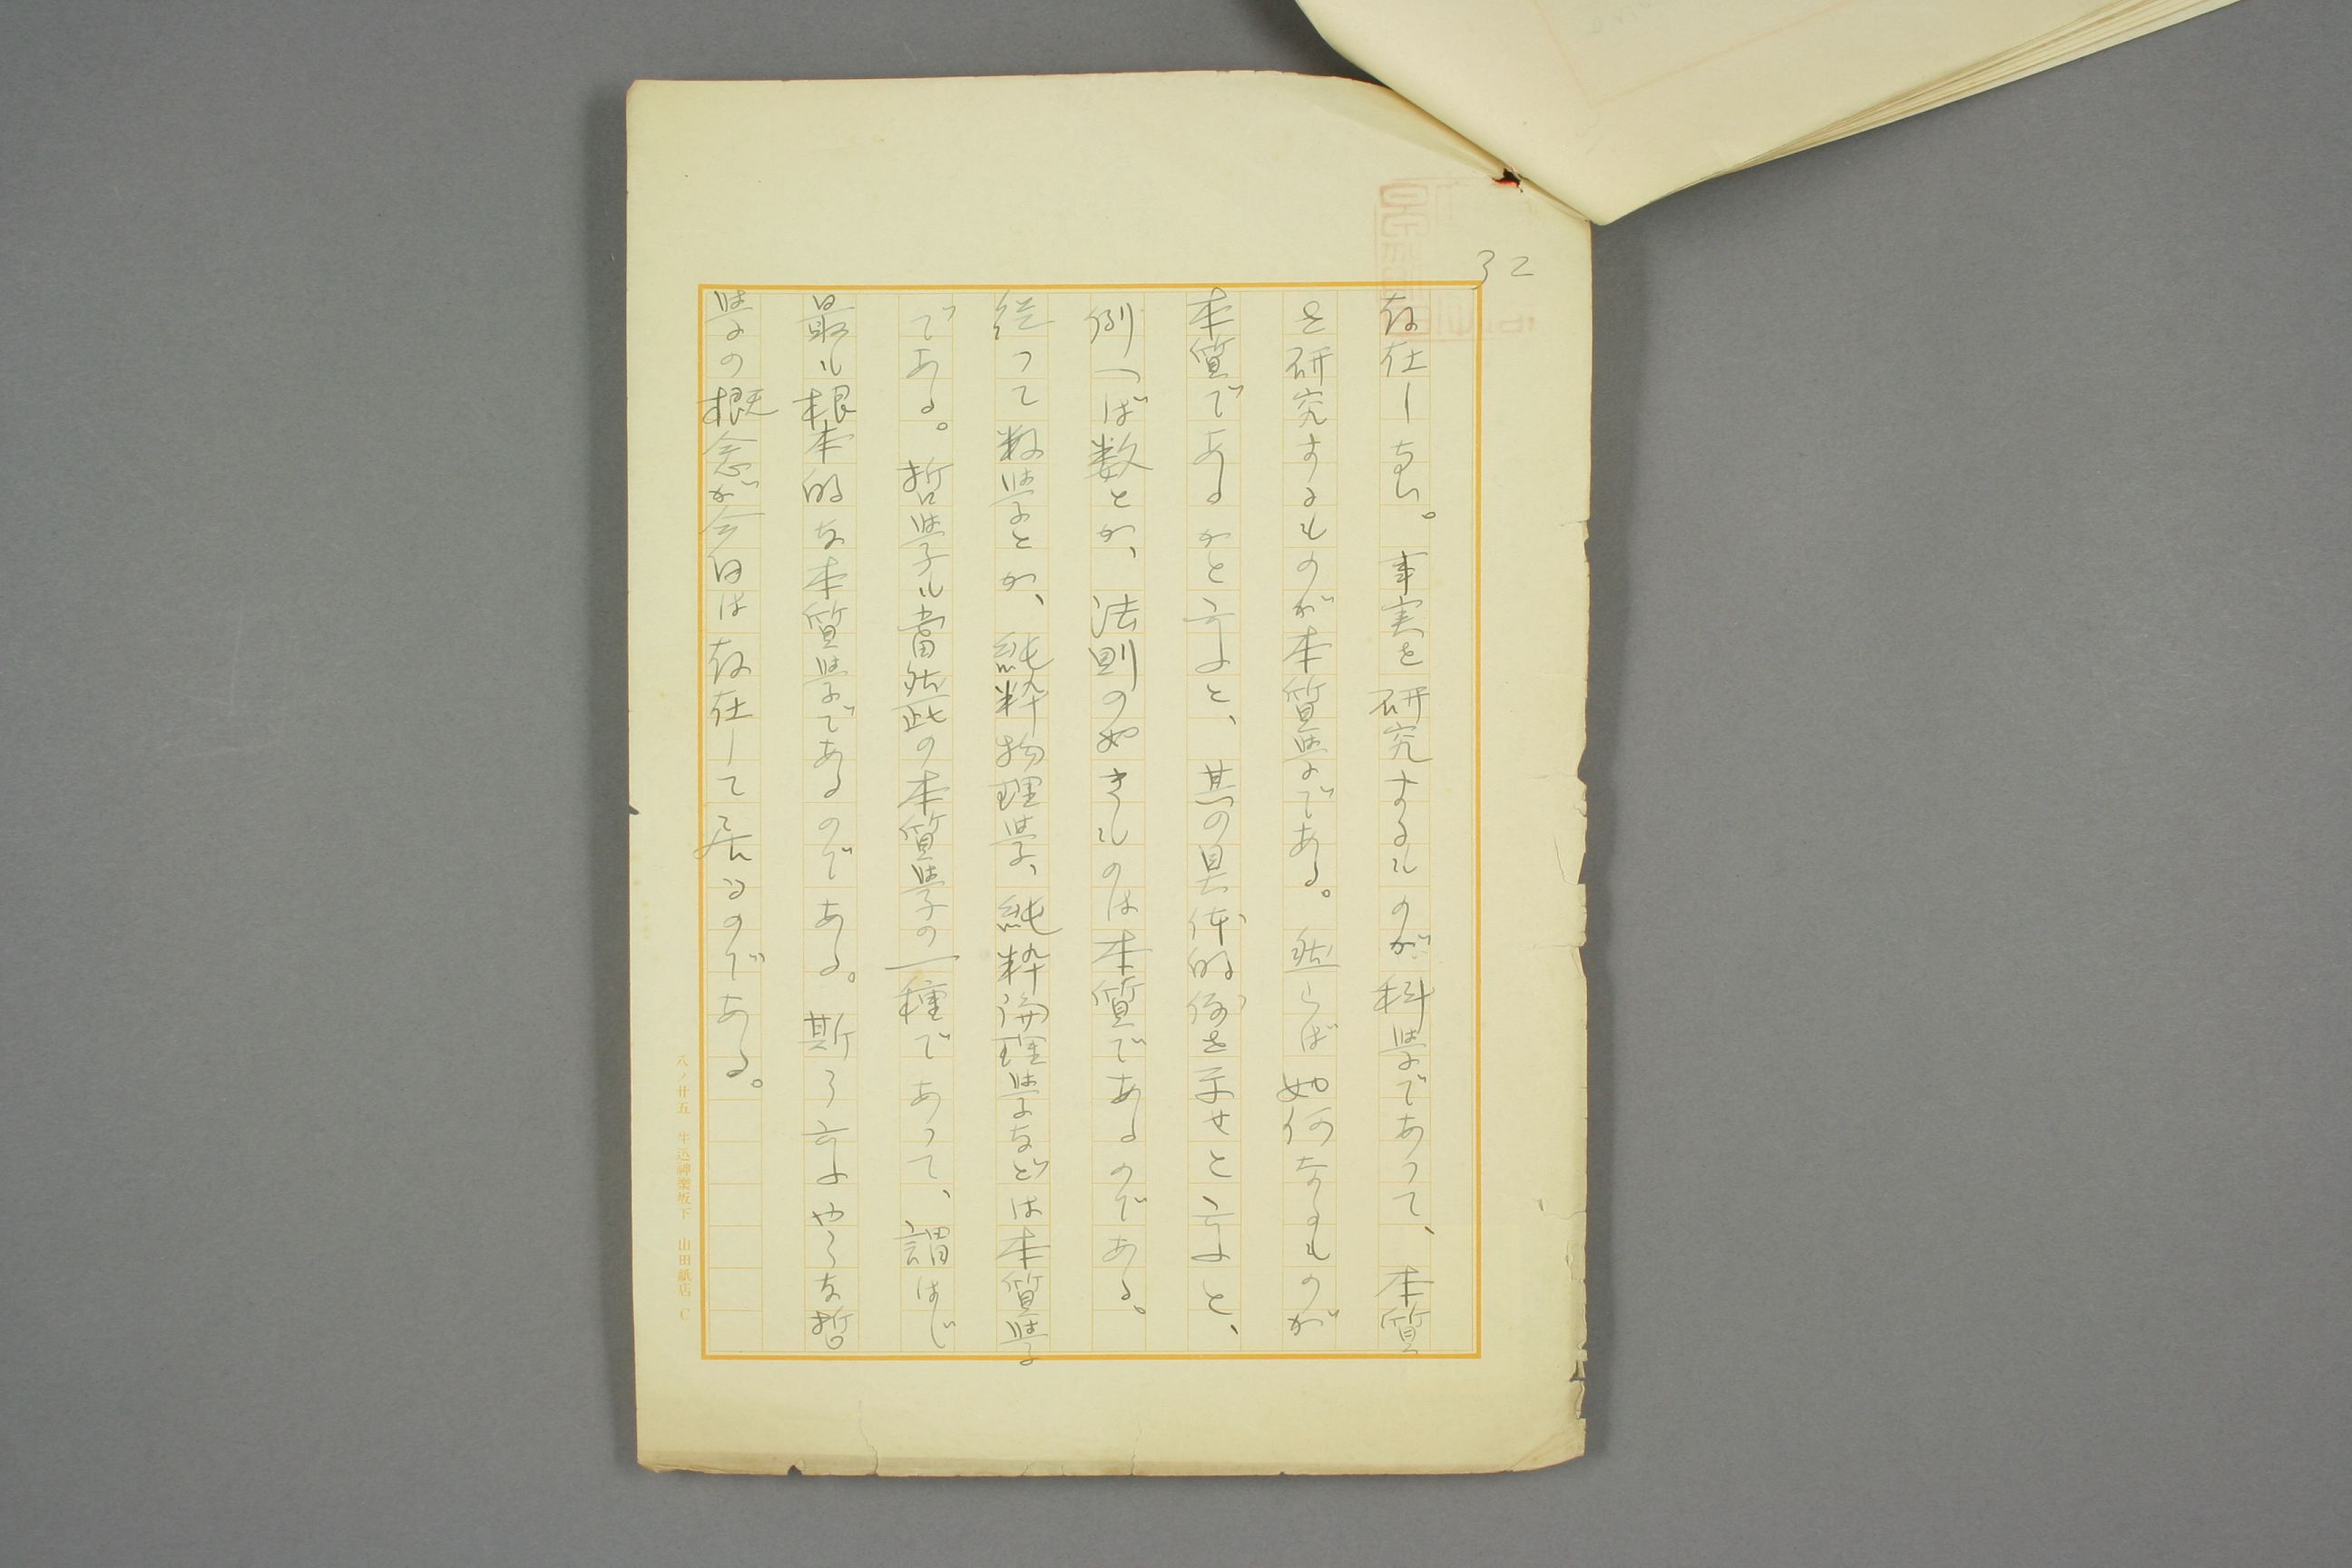 32
存在しない。事実を研究するものが科学であつて、本質
を研究するものが本質学である。然らば如何なるものが
本質であるかと云ふと、其の具体的例を示せと云ふと、
例へば数とか、法則の如きものは本質であるのである。
従つて数学とか、純粋物理学、純粋論理学などは本質学
である。哲学も當然此の本質学の一種であつて、謂はゞ
最も根本的な本質学であるのである。斯う云ふやうな哲
学の概念が今日は存在して居るのである。
八ノ廿五 牛込神樂坂下 山田紙店 C